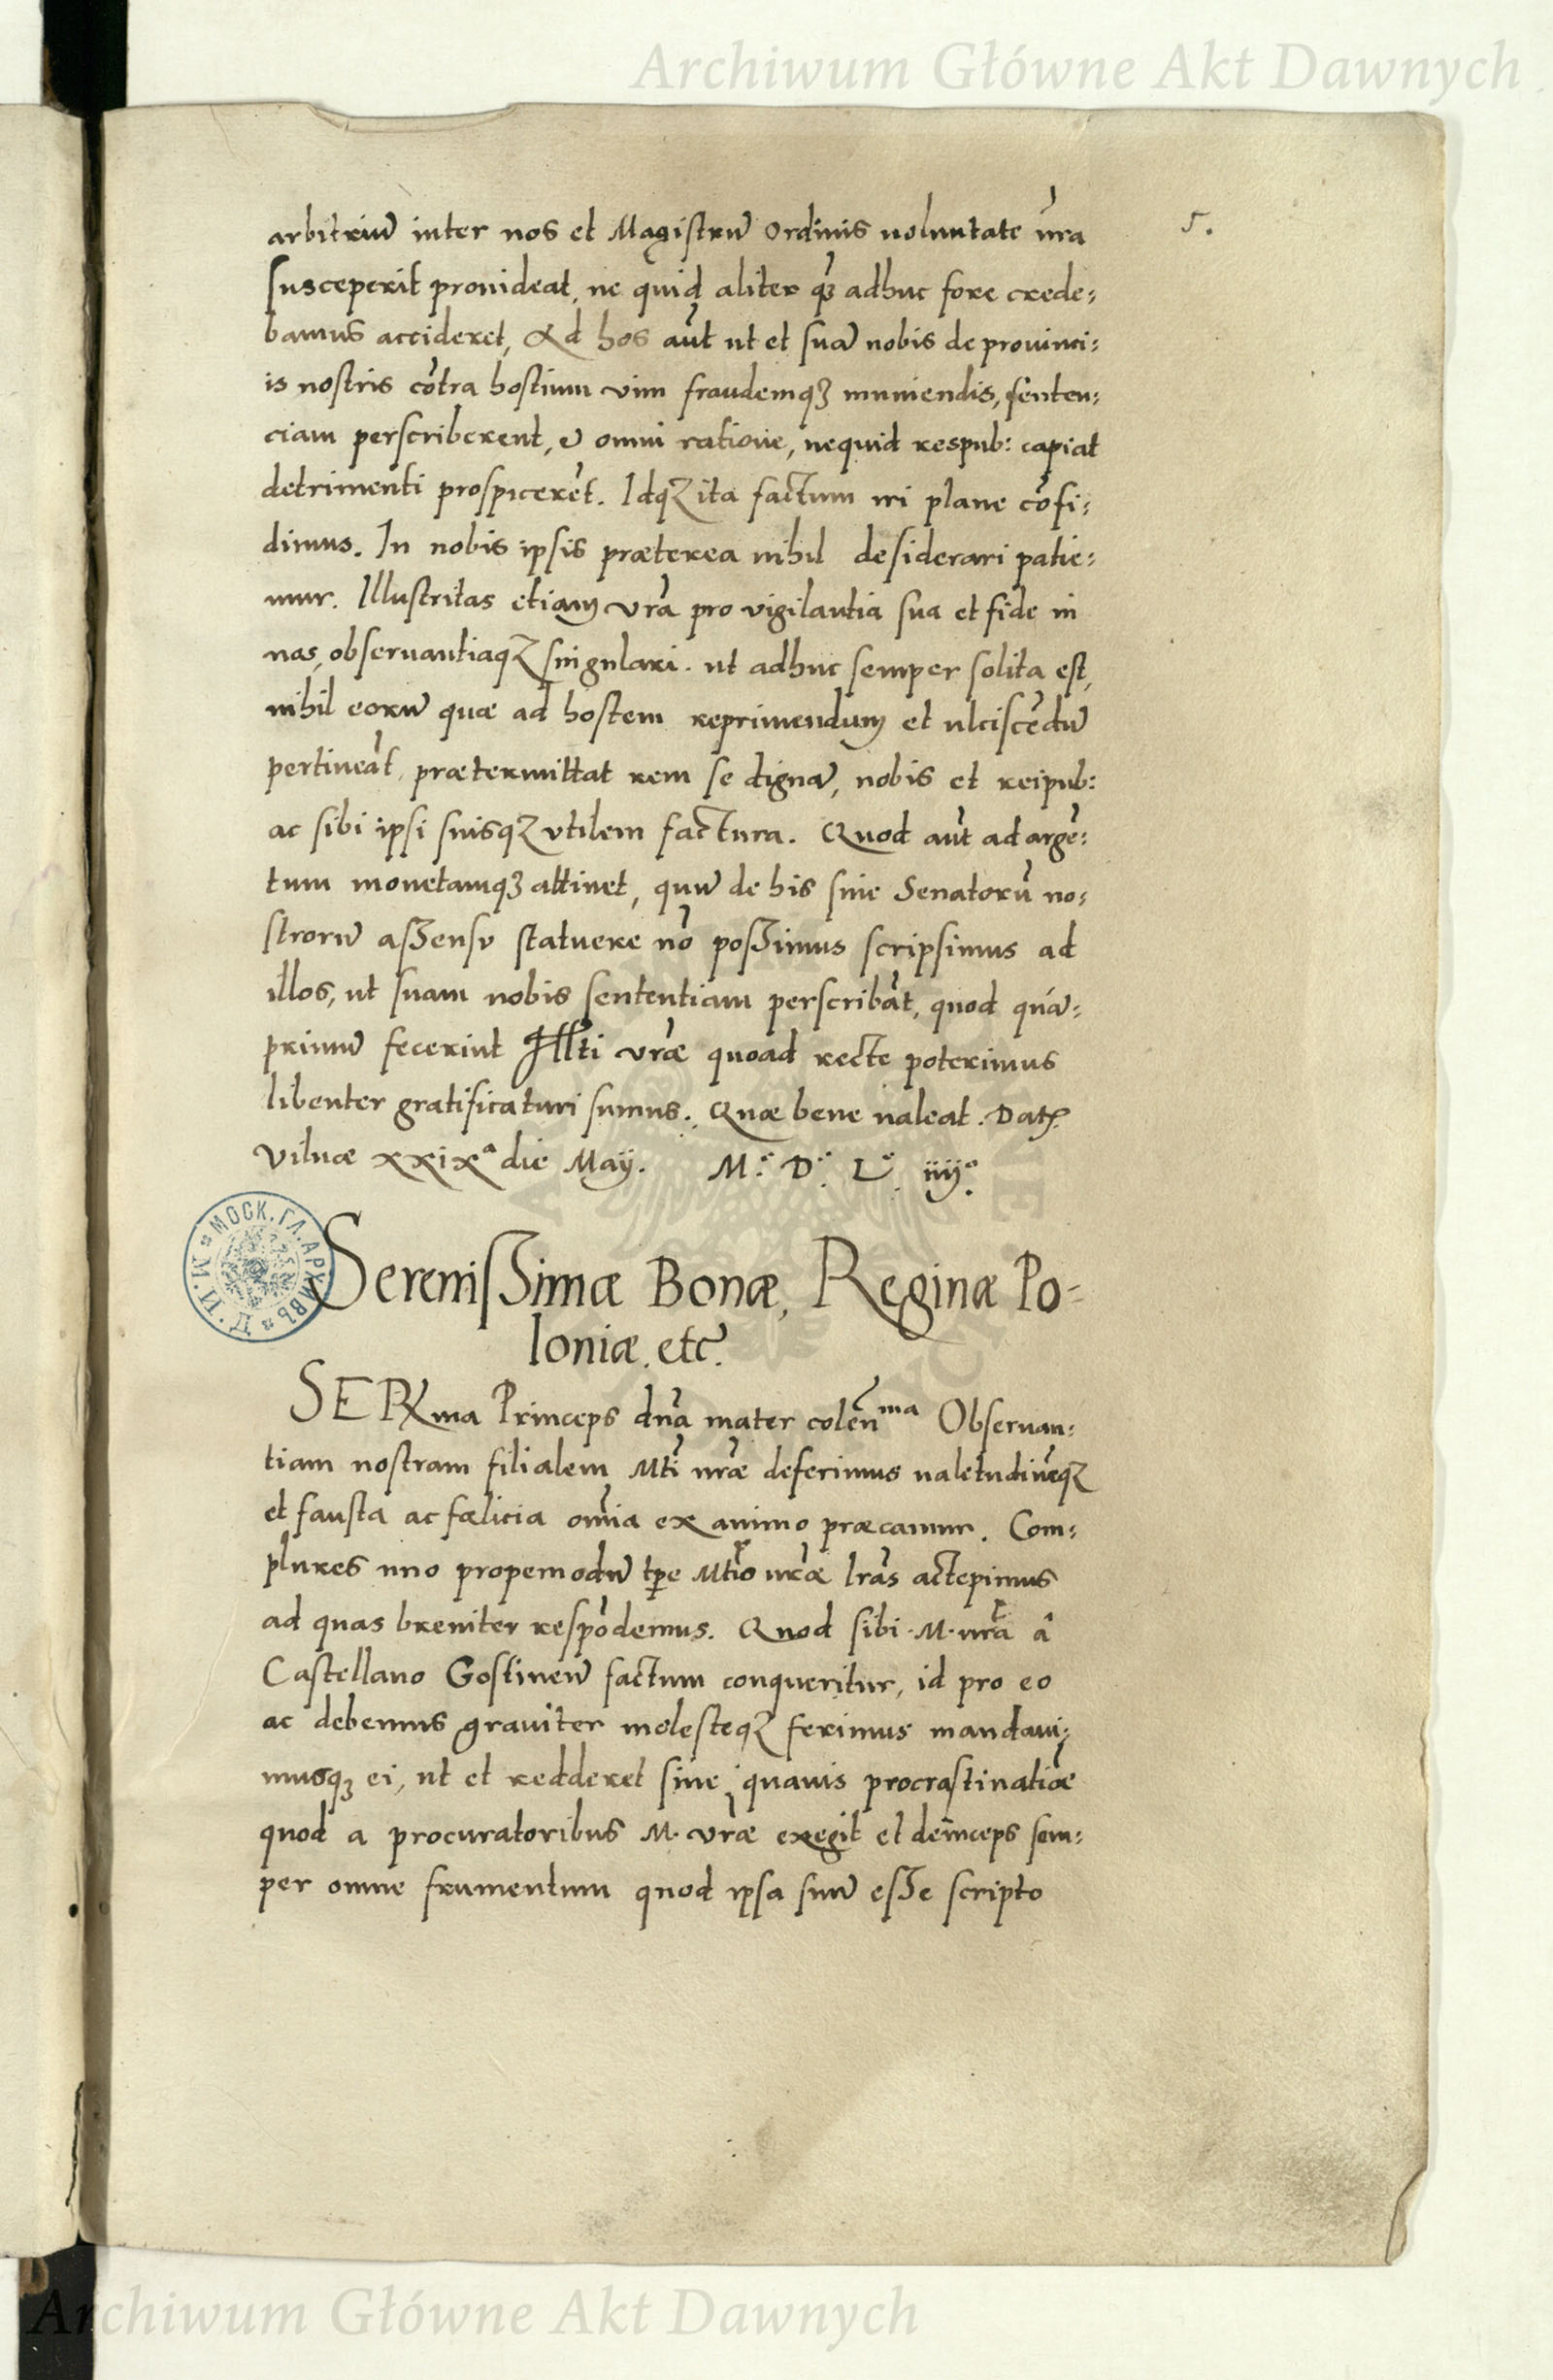 Archiwum Główne Akt Dawnych
5.
arbitriũ inter nos et Magistrũ Ordinis uoluntate ur̃a
susceperit prouideat, ne quid aliter q̃ꝫ adhuc fore crede:
bamus accideret, Ad hos aũt ut et suã nobis de prouinci:
is nostris cõtra hostium vim fraudemqꝫ muniendis, senten:
ciam perscriberent, & omni ratione, nequid respub: capiat
detrimenti prospicerẽt. Idqꝫ ita factum iri plane cõfi:
dimus. In nobis ipsis præterea nihil desiderari patie:
mur. Illustritas etiam vrã pro vigilantia sua et fide in
nos, obseruantiaqꝫ singulari. ut adhuc semper solita est,
nihil eorũ quæ ad hostem reprimendum et ulciscẽdũ
pertineãt, prætermittat rem se dignã, nobis et reipub:
ac sibi ipsi suisqꝫ vtilem factura. Quod aũt ad argẽ:
tum monetamqꝫ attinet, quũ de his sine Senatorũ no:
strorũ assensu statuere nõ possimus scripsimus ad
illos, ut suam nobis sententiam perscribãt, quod quã:
primũ fecerint Illti vrãe quoad recte poterimus
libenter gratificaturi sumus. Quæ bene ualeat. Datꝭ
Vilnæ xxixª die Maÿ. M.° D.° L.° iiij°.
МОСК. ГЛ. АРХИВЪ М. И. Д.
Serenissimæ Bonæ, Reginæ Po-
loniæ. etc.
SERma Princeps dnã mater colẽnma Obseruan:
tiam nostram filialem Mti ur̃æ deferimus ualetudinẽqꝫ
et fausta ac fœlicia om̃ia ex animo præcamur. Com:
plures uno propemodũ tꝑe Mtis ur̃æ lrãs accepimus
ad quas breuiter respõdemus. Quod sibi M. ur̃a â
Castellano Gostineñ factum conqueritur, id pro eo
ac debemus grauiter molesteqꝫ ferimus mandaui:
musqꝫ ei, ut et redderet sine quauis procrastinatiõe
quod a procuratoribus M. vrãe exegit et deinceps sem:
per omne frumentum quod ipsa suũ esse scripto
Archiwum Główne Akt Dawnych